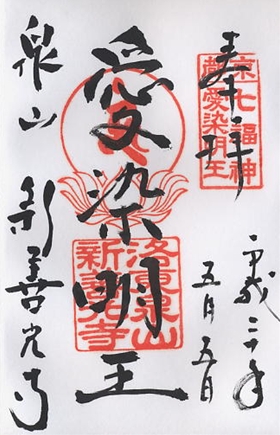 奉拝
京七福神
愛染明王
平成二十年
五月五日
愛染明王
洛東泉山
新善光寺
泉山 新善光寺